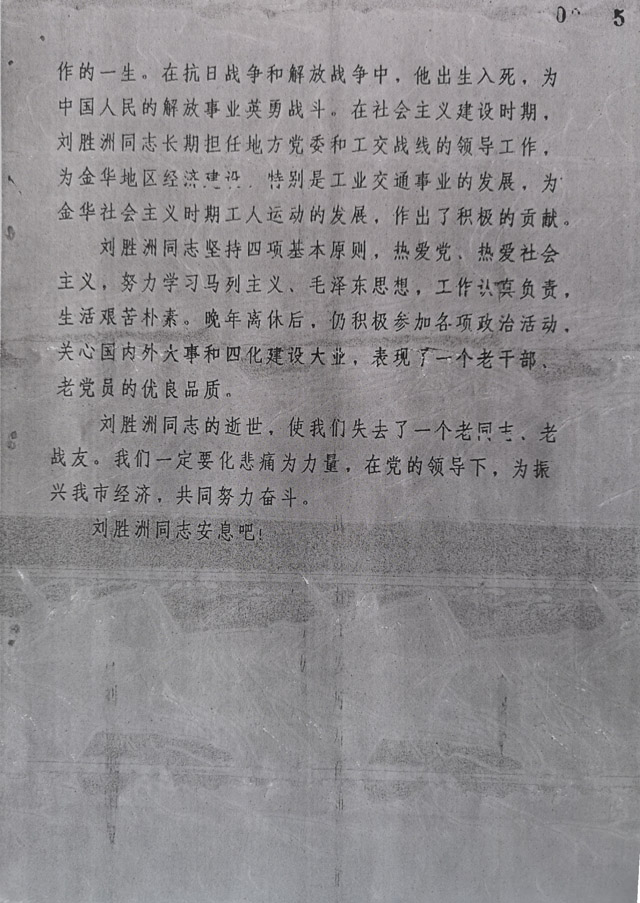 5
作的一生。在抗日战争和解放战争中，他出生入死，为
中国人民的解放事业英勇战斗。在社会主义建设时期，
刘胜洲同志长期担任地方党委和工交战线的领导工作，
为金华地区经济建设、特别是工业交通事业的发展，为
金华社会主义时期工人运动的发展，作出了积极的贡献。
刘胜洲同志坚持四项基本原则，热爱党、热爱社会
主义，努力学习马列主义、毛泽东思想，工作认真负责，
生活艰苦朴素。晚年离休后，仍积极参加各项政治活动，
关心国内外大事和四化建设大业，表现了一个老干部、
老党员的优良品质。
刘胜洲同志的逝世，使我们失去了一个老同志、老
战友。我们一定要化悲痛为力量，在党的领导下，为振
兴我市经济，共同努力奋斗。
刘胜洲同志安息吧！